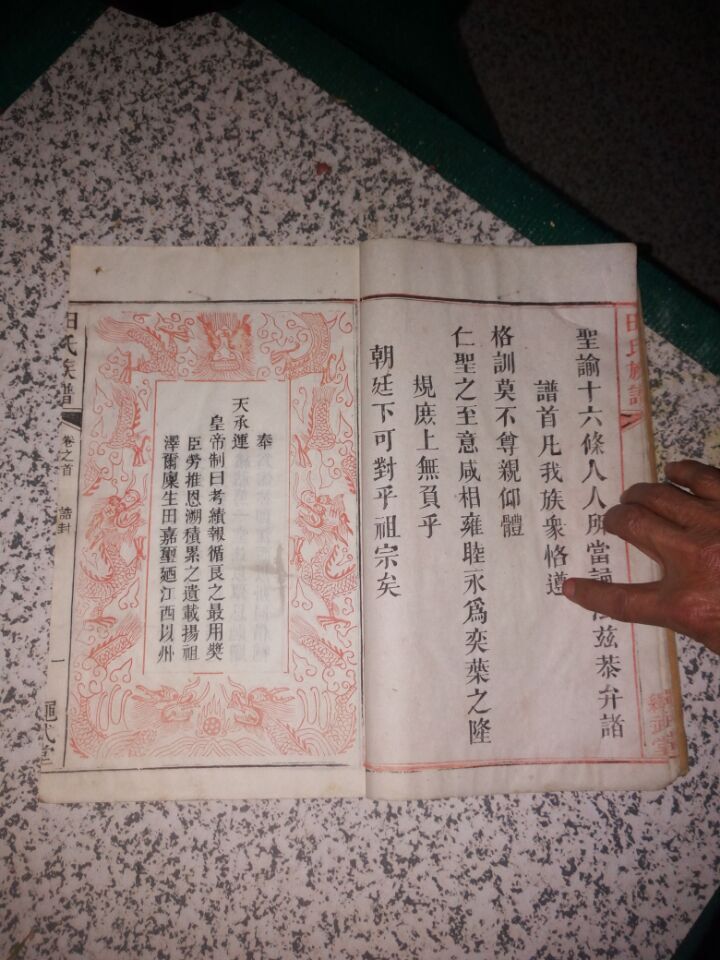 田氏族譜
聖諭十六條人人所當 茲恭弁諸
譜首凡我族衆恪遵
格訓莫不尊親仰體
仁聖之至意咸相雍睦永爲奕葉之隆
規庶上無負乎
朝廷下可對乎祖宗矣
奉
天承運
皇帝制曰考績報循良之最用獎
臣勞推恩溯積累之遺載揚祖
澤爾廩生田嘉璽廼江西以州
田氏族譜
卷之首
誥封
一
式堂